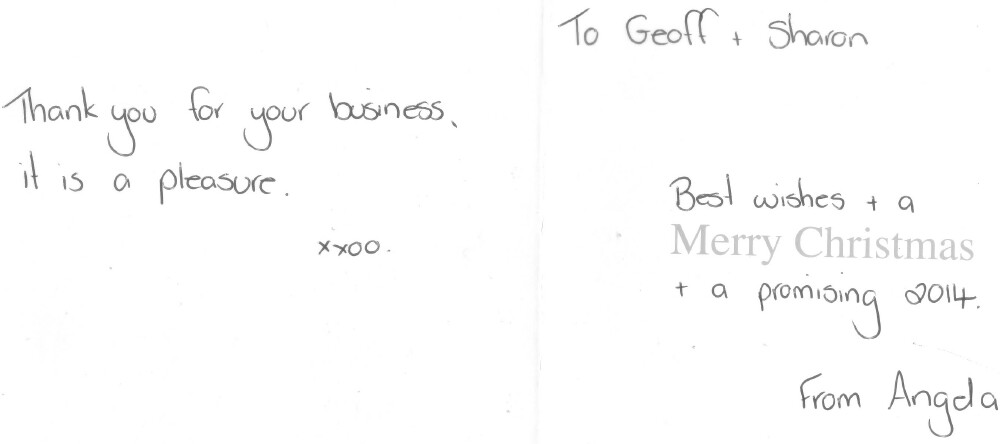 Thank you for your business,
it is a pleasure.
xxoo.
To Geoff + Sharon
Best wishes + a
Merry Christmas
+ a promising 2014.
From Angela